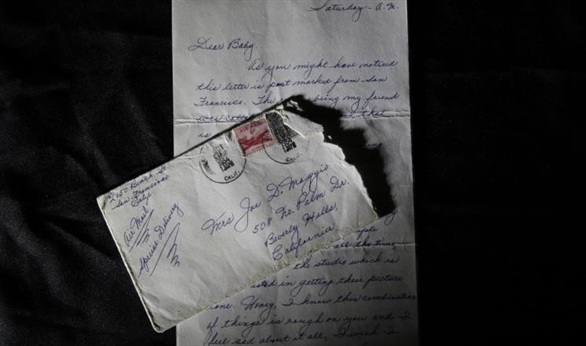 Saturday - A.M.
Dear Baby,
As you might have noticed
this letter is post marked from San
Francisco. The being my friend
that
as
San Francisco
Calif
Air Mail
Special Delivery
Mrs Joe D. Maggio
508 No. Palm Dr.
Beverly Hills,
California
all the time
the studio which is
in getting their picture
one. Honey, I know this combination
of things is rough on you and I
feel sad about it all. I wish I